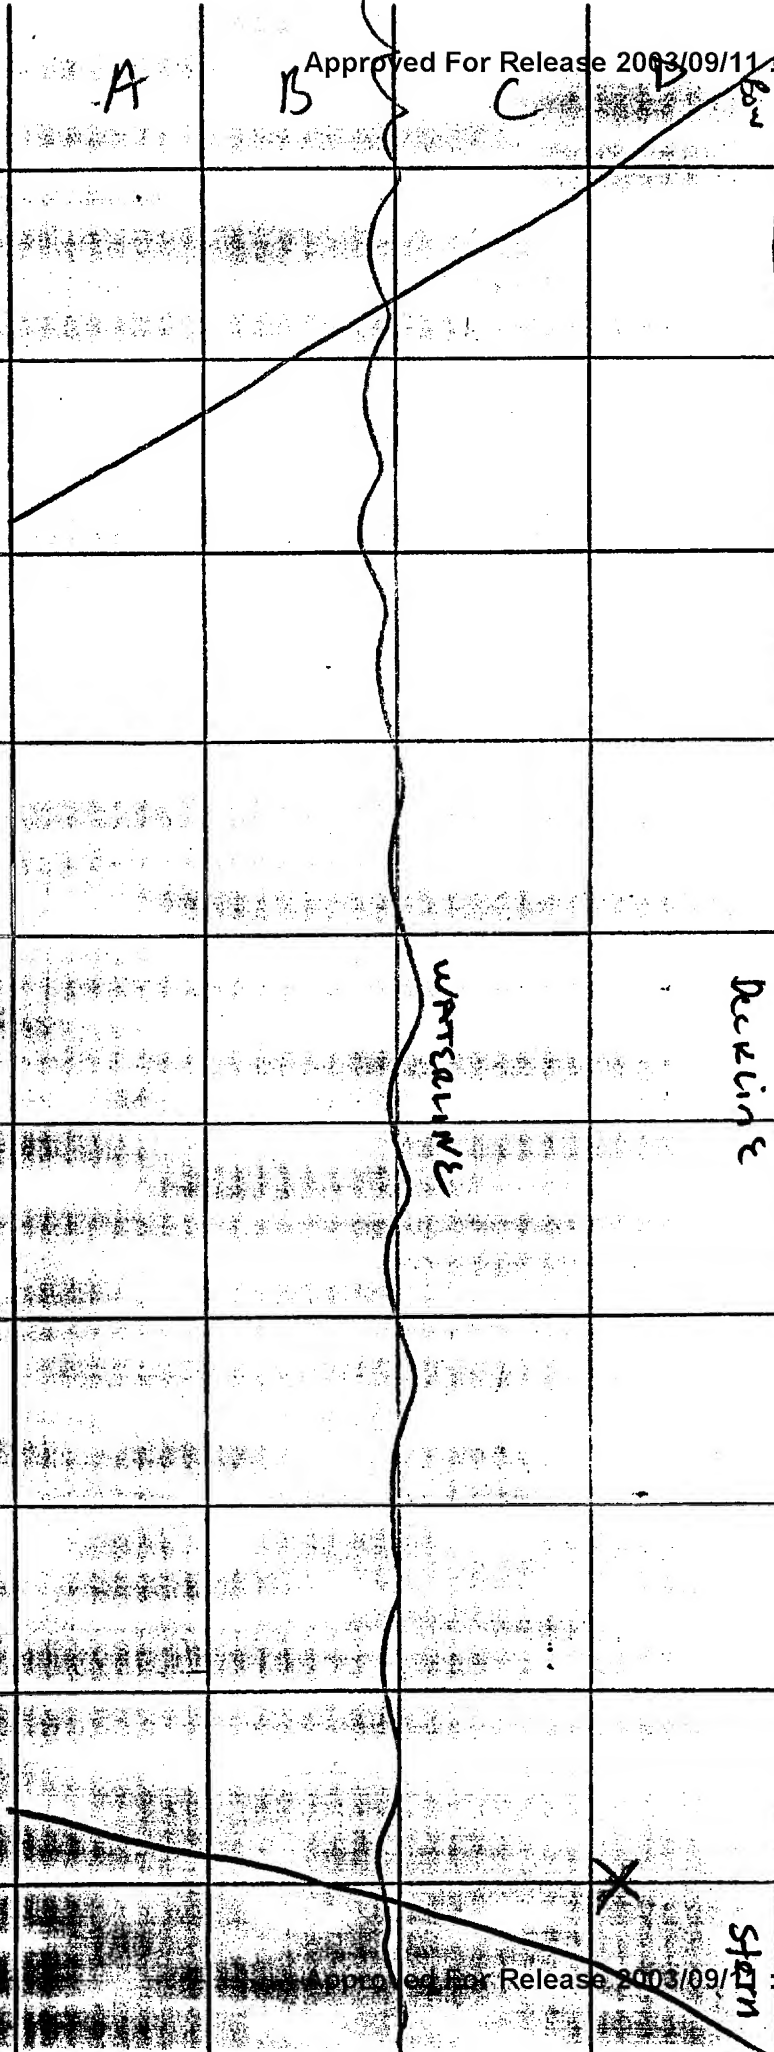 Approved For Release 2003/09/11 :
A B C D
Bow
Deckline
WATERLINE
X
Stern
Approved For Release 2003/09/11 :